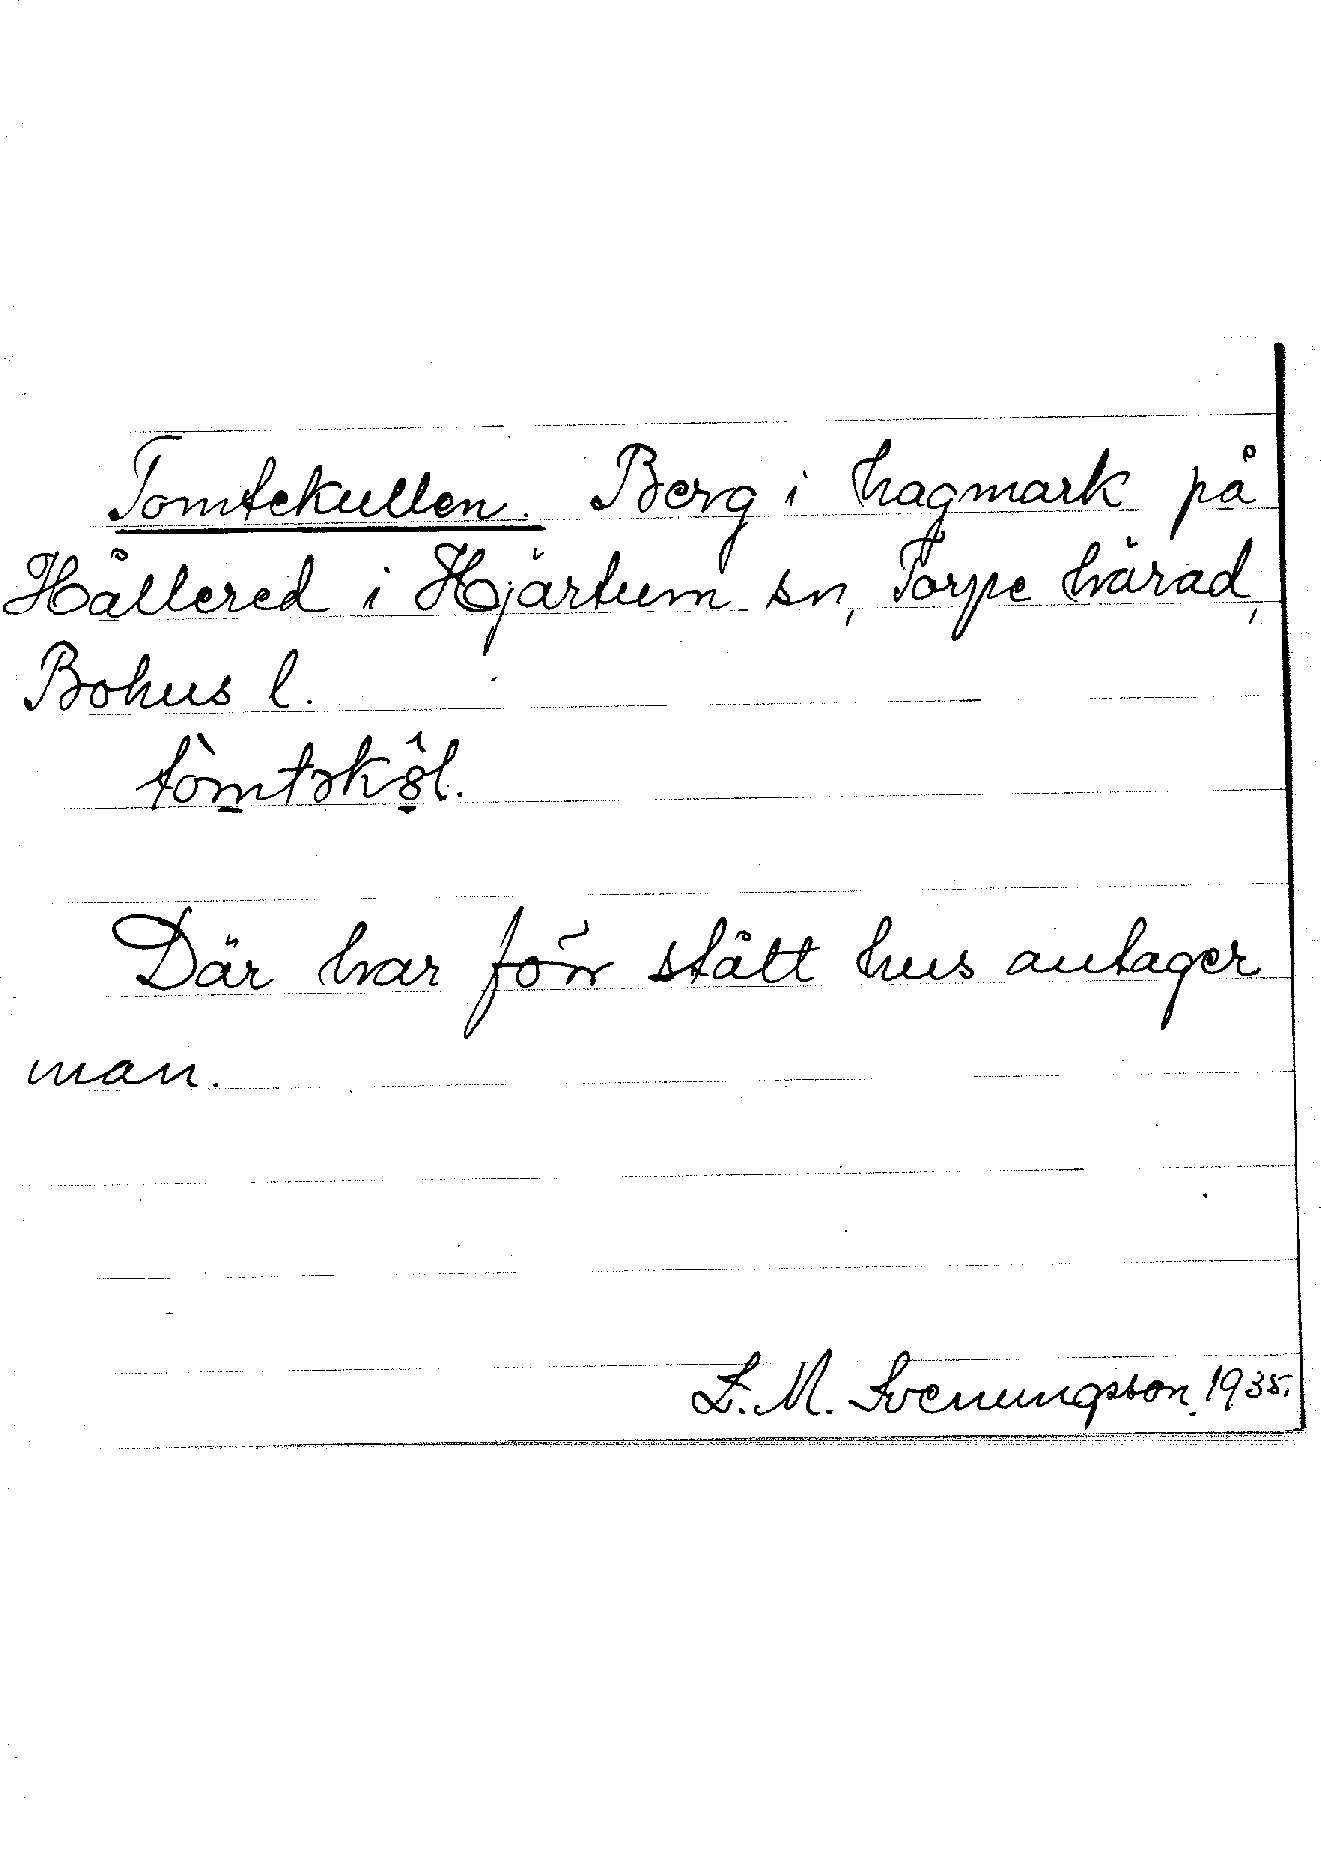 Tomtekullen. Berg i hagmark på
Hållered i Hjärtum sn, Torpe härad,
Bohus l.
tòmtəkô̱l.
Där har förr stått hus antager
man.
L. M. Svenungsson. 1935.